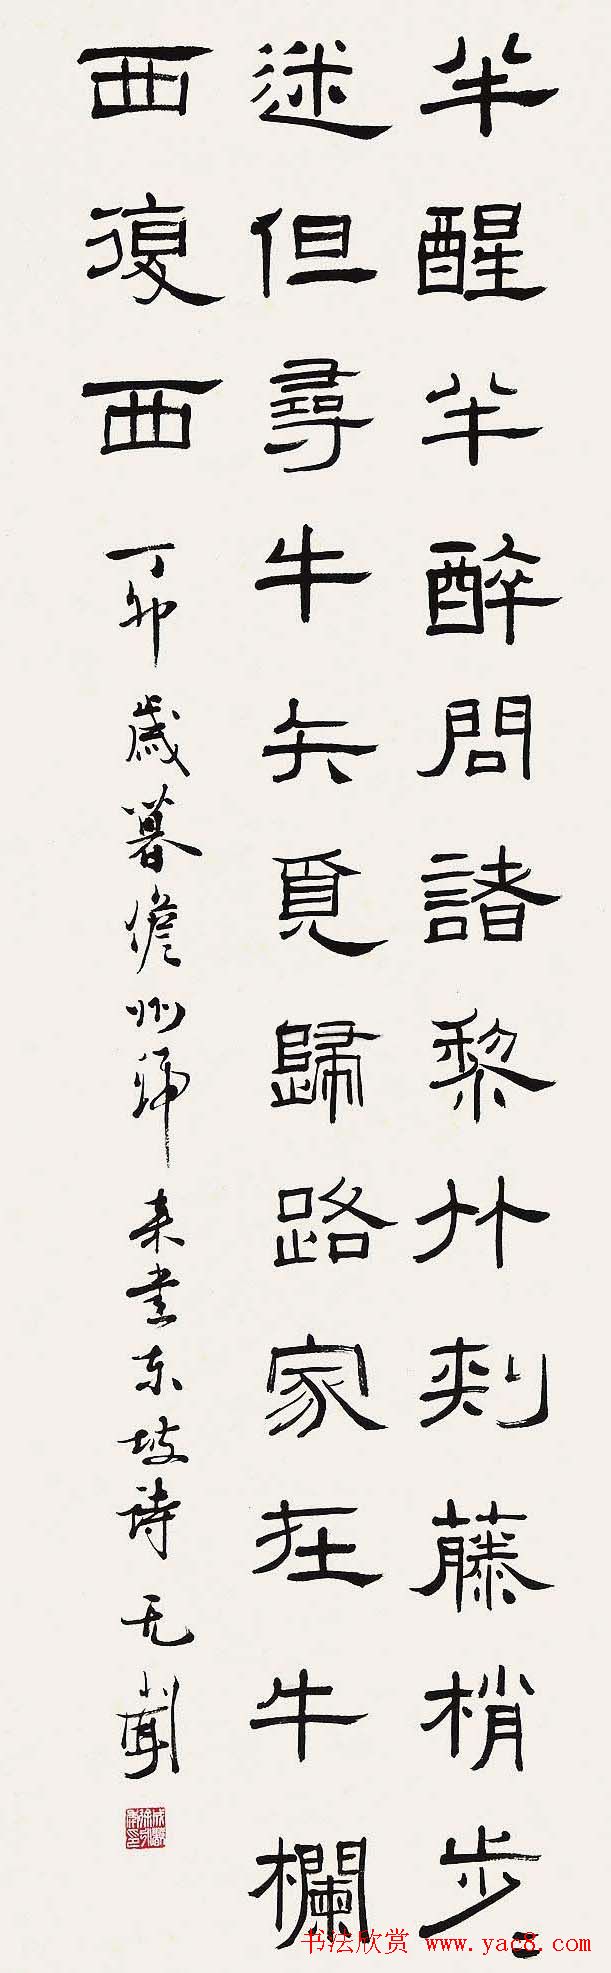 半醒半醉問諸黎竹刺藤梢步=
迷但尋牛矢覓歸路家在牛欄
西復西
丁卯歲暮儋州歸来書東坡詩 无聞
书法欣赏 www.yac8.com